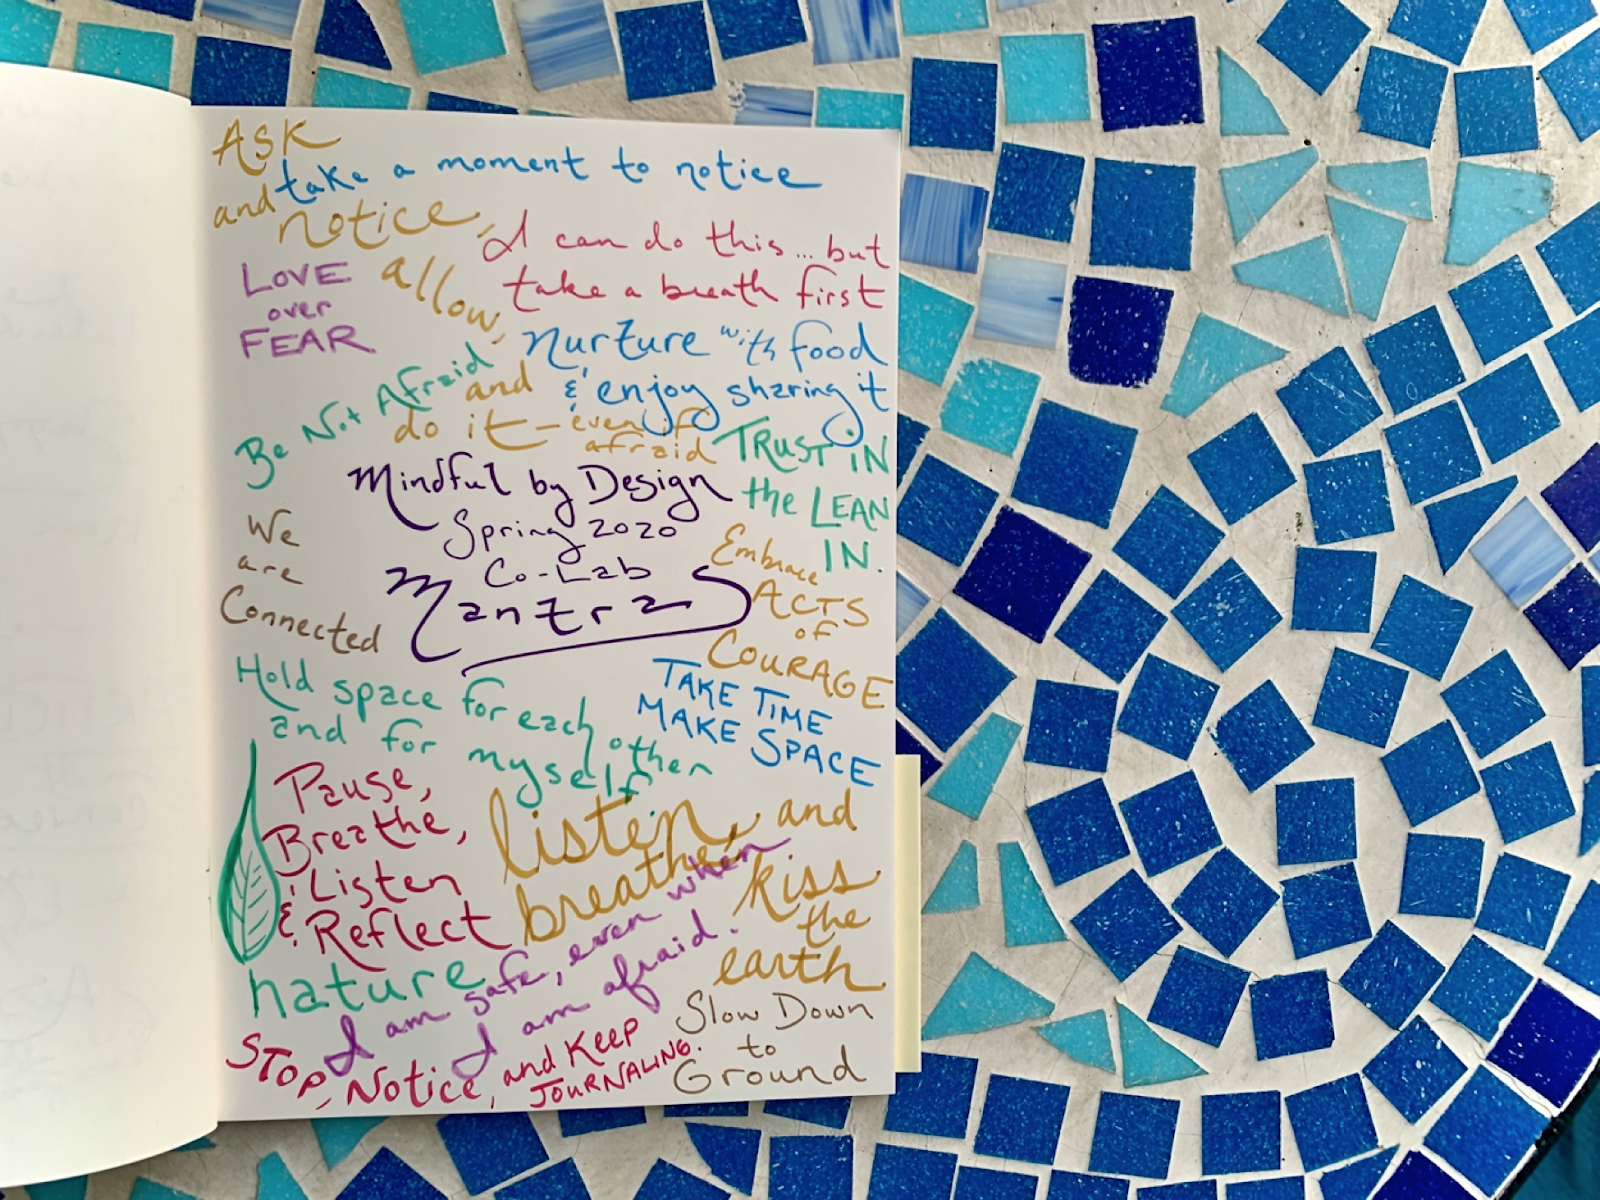 ASK
and
notice,
allow,
and
do it – even if
afraid
take a moment to notice
I can do this... but
take a breath first
LOVE
over
FEAR.
nurture with food
& enjoy sharing it
Be Not Afraid
TRUST IN
the LEAN
IN.
Mindful by Design
Spring 2020
Co-Lab
Mantras
We
are
Connected
Embrace
ACTS
of
COURAGE
Hold space for each other
and for myself
TAKE TIME
MAKE SPACE
Pause,
Breathe,
Listen
& Reflect
listen, and
breathe,
kiss
the
earth
nature
I am safe, even when
I am afraid.
STOP, Notice, and KEEP
JOURNALING.
Slow Down
to
Ground